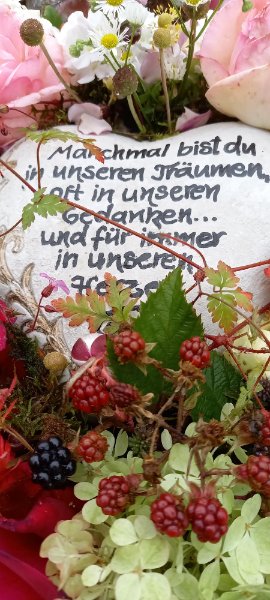 Manchmal bist du
in unseren Träumen,
oft in unseren
Gedanken...
und für immer
in unseren
Herzen